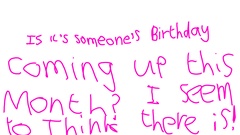 Is it's someone's Birthday
Coming up this
Month? I seem
to Think there is!